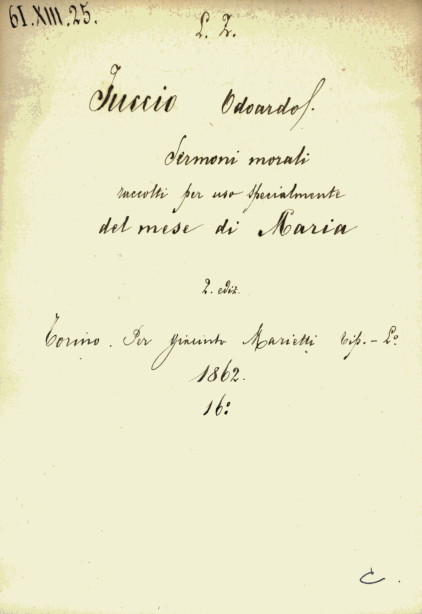 61.XIII.25.
L. Z.
Tuccio Odoardo S.
Sermoni morali
raccolti per uso specialmente
del mese di Maria
2. ediz.
Torino. Per Giacinto Marietti Tip. - Lº
1862.
16º
C.